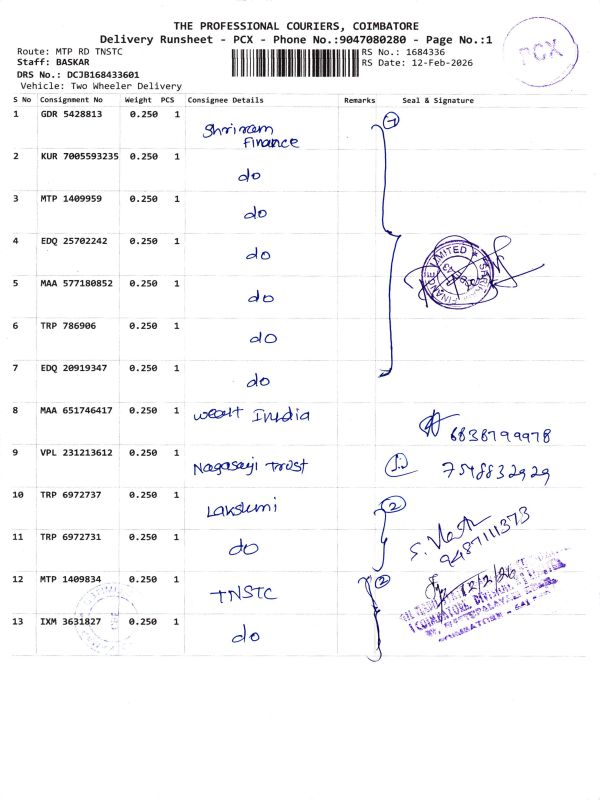 THE PROFESSIONAL COURIERS, COIMBATORE
Delivery Runsheet - PCX - Phone No.:9047080280 - Page No.:1
Route: MTP RD TNSTC
RS No.: 1684336
Staff: BASKAR
RS Date: 12-Feb-2026
DRS No.: DCJB168433601
Vehicle: Two Wheeler Delivery
PCX
S No Consignment No Weight PCS Consignee Details Remarks Seal & Signature
1 GDR 5428813 0.250 1 Shriram Finance 7
2 KUR 7005593235 0.250 1 do
3 MTP 1409959 0.250 1 do
4 EDQ 25702242 0.250 1 do
LIMITED
FINANCE
5 MAA 577180852 0.250 1 do
6 TRP 786906 0.250 1 do
7 EDQ 20919347 0.250 1 do
8 MAA 651746417 0.250 1 India 6838799978
9 VPL 231213612 0.250 1 Nagasayi Trust 7548832929
10 TRP 6972737 0.250 1 Lakshmi 2
11 TRP 6972731 0.250 1 do 9487111373
12 MTP 1409834 0.250 1 TNSTC 2 12/2/26
13 IXM 3631827 0.250 1 do
COIMBATORE